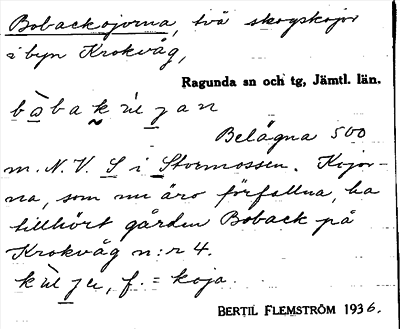 Bobackojorna, två skogskojor
i byn Krokvåg,
Ragunda sn och tg, Jämtl. län.
Belägna 500
m. N.V. S i Stormossen. Kojor-
na, som nu äro förfallna, ha
tillhört gården Boback på
Krokvåg n:r 4.
f. = koja
BERTIL FLEMSTRÖM 1936.